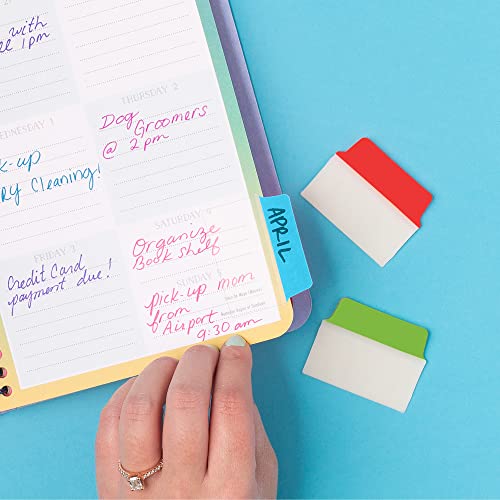 with
1pm
THURSDAY 2
Dog
Groomers
@ 2pm
WEDNESDAY 1
ck-up
RY Cleaning!
SATURDAY 4
Organize
Book Shelf
FRIDAY 3
Credit Card
payment due!
SUNDAY 5
pick-up mom
from
Airport
9:30 am
APRIL